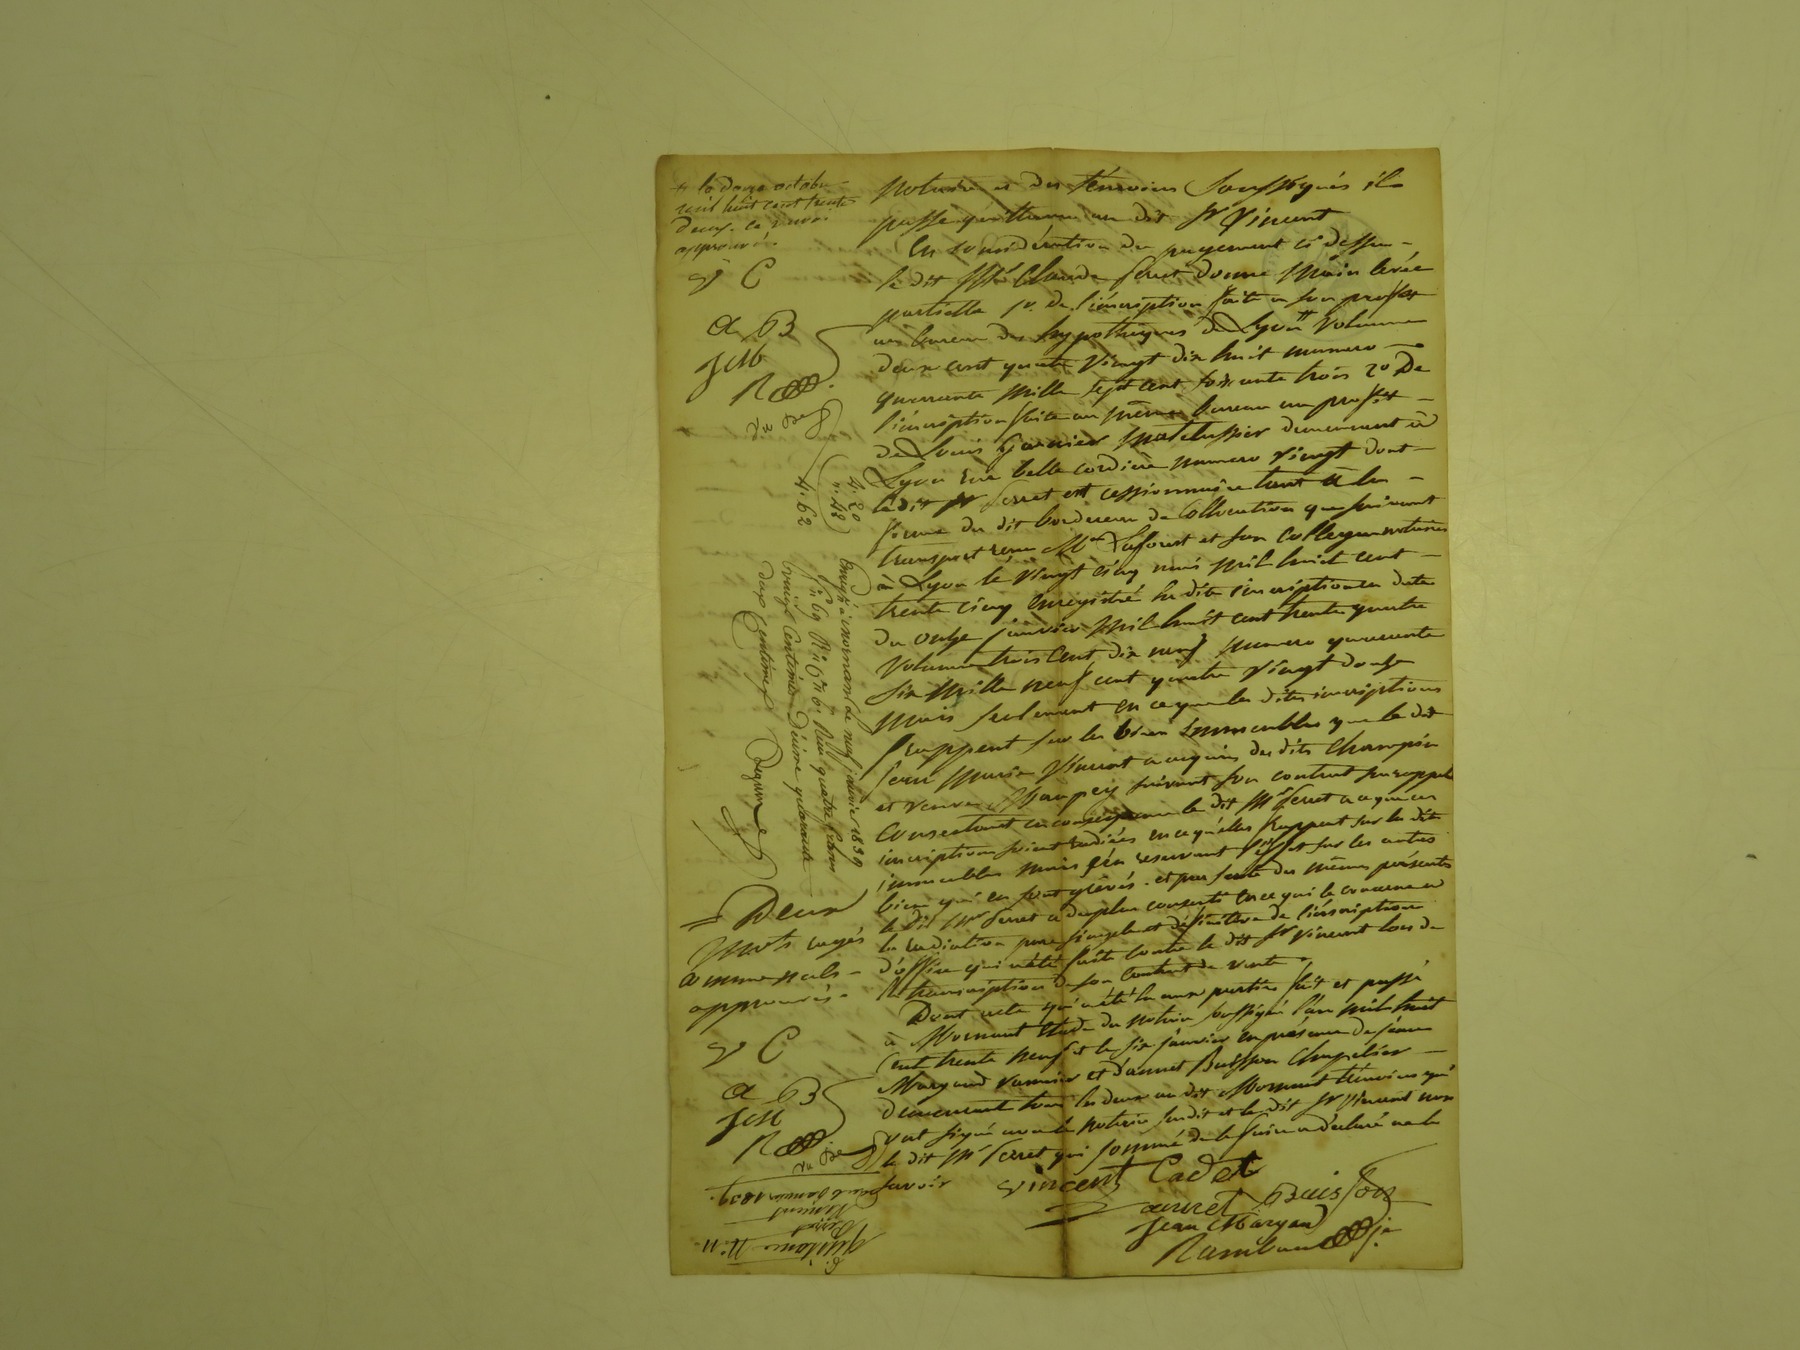 notaire et des témoins soussignés il
passe quittance au dit Sr Vincent
En considération du payement ci dessus
le dit Mr Claude Serret donne main levée
partielle 1o. de l'inscription faite a son profit
au bureau des hypothèques de Lyon Volume
deux cent quatre vingt dix huit numero
quarante mille sept cent soixante trois 2o De
l'inscription faite au même bureau au profit
de Louis Garnier demeurant à
Lyon rue belle cordière numero vingt dont
le dit Mr Serret est cessionnaire tant à la
forme du dit bordereau de Collocation que suivant
transport reçu Me Laforest et son Collegue notaires
à Lyon le vingt cinq mars mil huit cent
trente cinq enregistré la dite inscription en date
du onze janvier mil huit cent trente quatre
Volume trois cent dix neuf numero quarante
six mille neuf cent quatre vingt douze
mais seulement en ce que les dites inscriptions
frappent sur les biens immeubles que le dit
Jean Marie Vincent a acquis des dits Champin
et veuve suivant son contrat
Consentant en conséquence le dit Mr Serret a ce que ces
inscriptions soient radiées en ce qu'elles frappent sur les dits
immeubles mais s'en reservant l'effet sur les autres
biens qui en sont grêvés. et par suite des mêmes présentes
le dit Mr Serret a de plus consenti en ce qui le concerne a
la radiation pure simple et définitive de l'inscription
d'office qui a été faite contre le dit Sr Vincent lors de
la transcription de son Contrat de vente.
Dont acte qui a été lu aux parties fait et passé
à Mornant étude du notaire soussigné l'an mil huit
cent trente neuf et le six janvier en présence de Jean
Margand et d'annet Buisson Chapelier
demeurant tous les deux au dit Mornant témoins qui
ont signé avec le notaire le dit Sr Vincent non
le dit Mr Serret qui sommé de le faire a déclaré ne le
savoir
Vincent Cadet
annet Buisson
Jean Margand
Rambaud
+ le douze octobre
mil huit cent trente
deux. ce renvoi
approuvé.
V C
a B
JM
R
4. 20
". 42
4. 62
Enregé à mornant le neuf janvier 1839
fo 69 Ro Co 6. Reçu quatre francs
vingt Centimes Décime quarante
deux Centimes
= Deux
mots rayés
comme nuls
approuvés.
V C
a B
JM
R
6 janvier 1839.
Vincent
Serret
Quittance No 11.